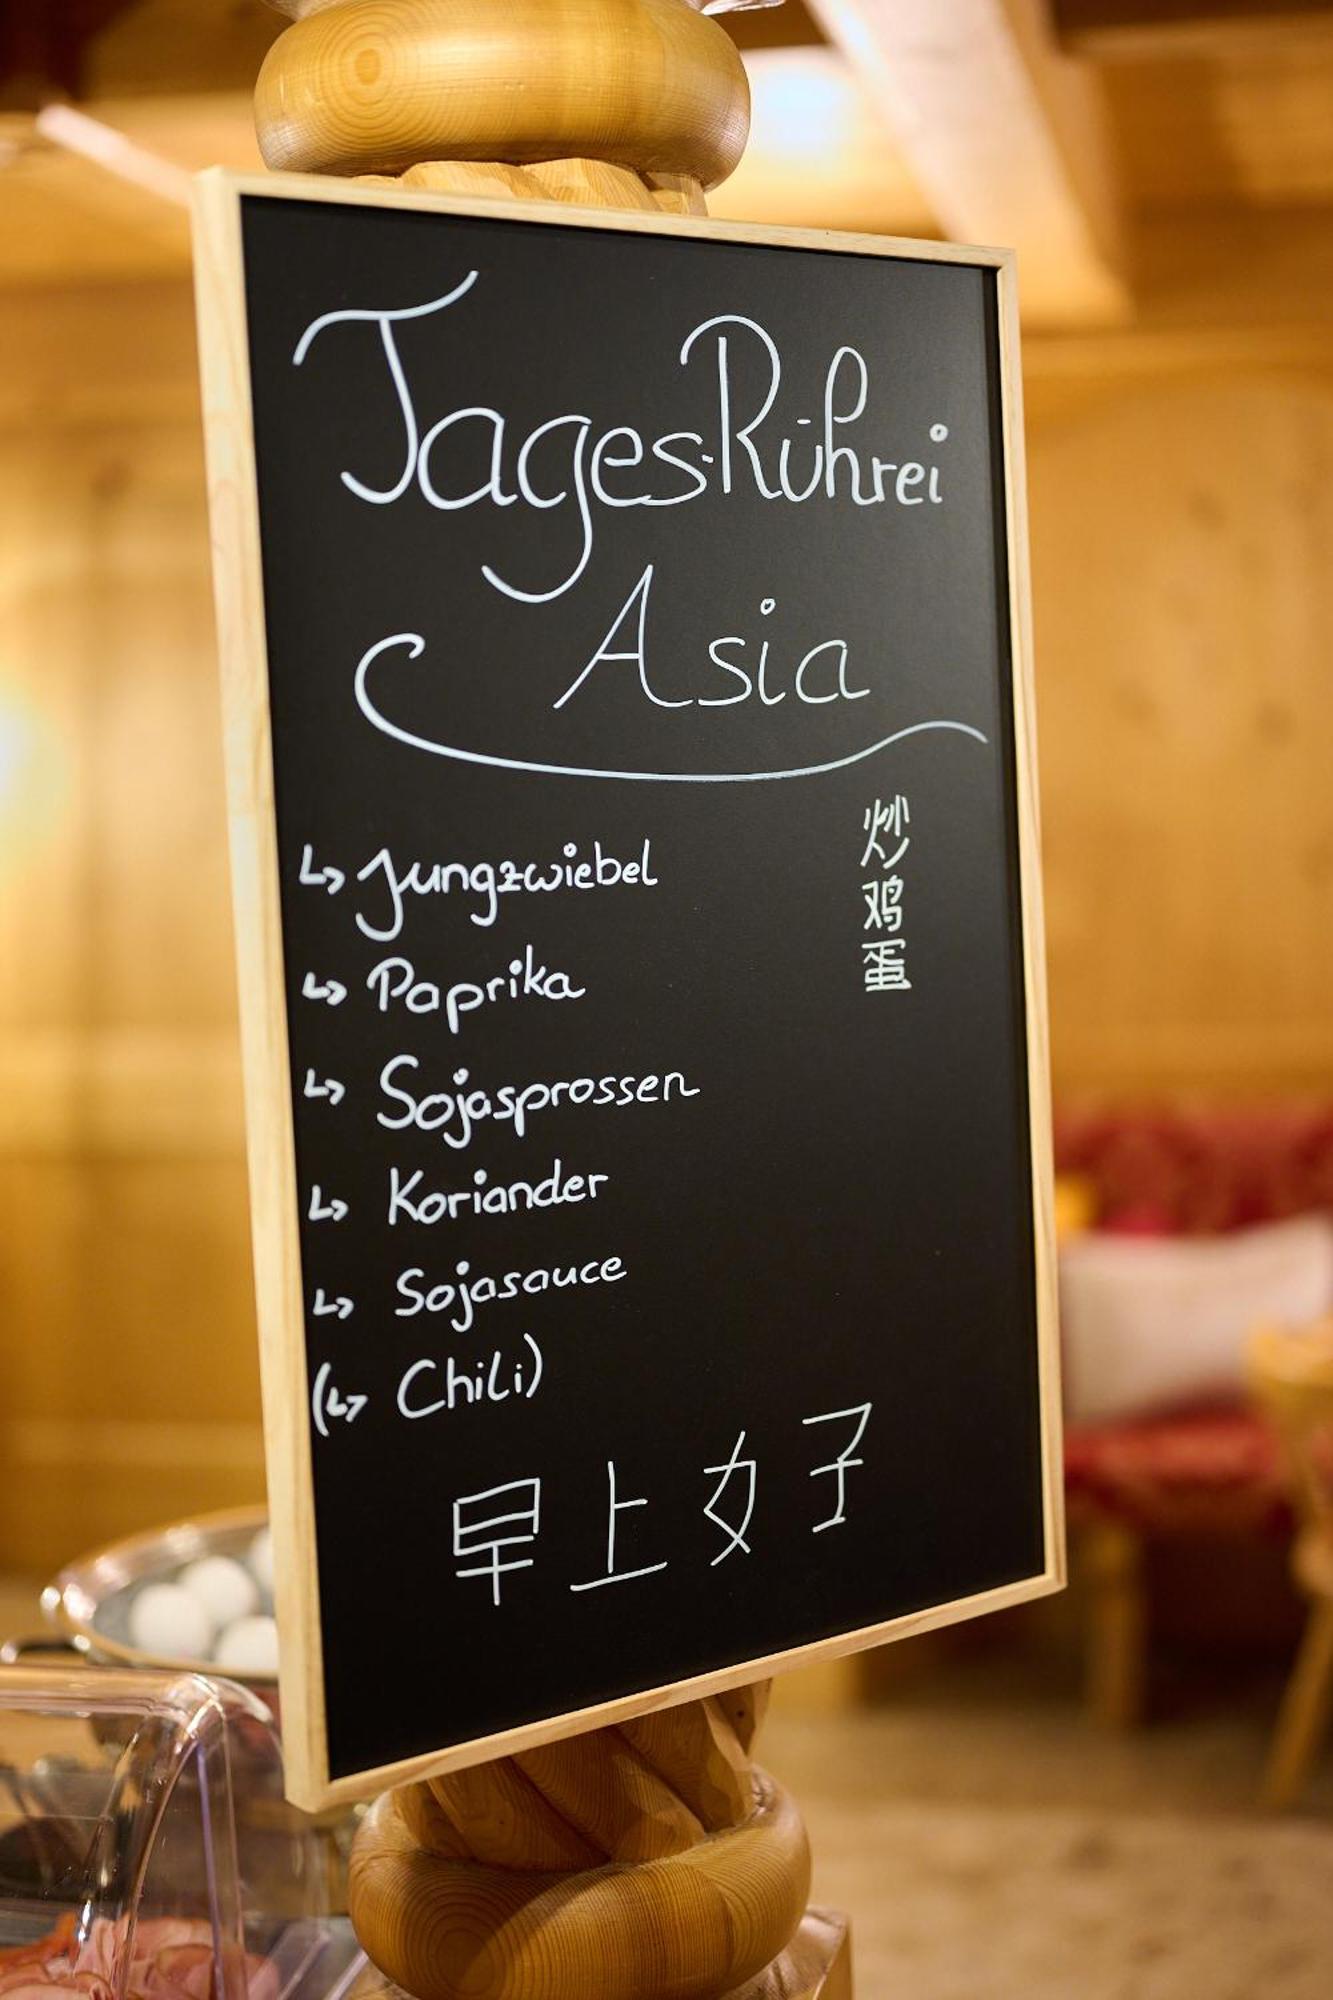 Tages-Rührei
Asia
↳ Jungzwiebel
↳ Paprika
↳ Sojasprossen
↳ Koriander
↳ Sojasauce
(↳ Chili)
炒鸡蛋
早上女子